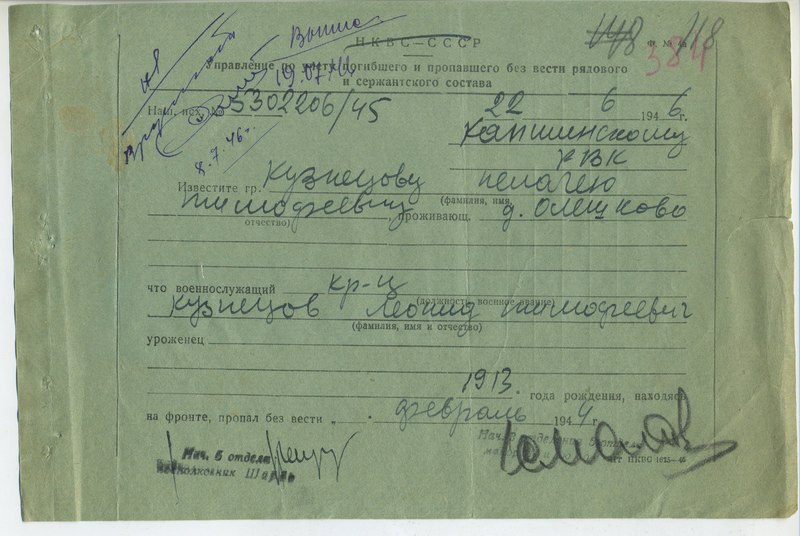 НКВС—СССР
Ф. № 118
384
Управление по учету погибшего и пропавшего без вести рядового
и сержантского состава
19.07.46
Наш. исх. № 5302206/45
22 6 1946 г.
8.7.46 г.
Капшинскому
РВК
Известите гр. Кузнецову Пелагею
(фамилия, имя,
Тимофеевну, проживающ. д. Олешково
отчество)
что военнослужащий кр-ц
(должность, военное звание)
Кузнецов Леонид Тимофеевич
(фамилия, имя и отчество)
уроженец
1913. года рождения, находясь
на фронте, пропал без вести „ . февраль 1944 г.
Нач. 5 отдела
подполковник